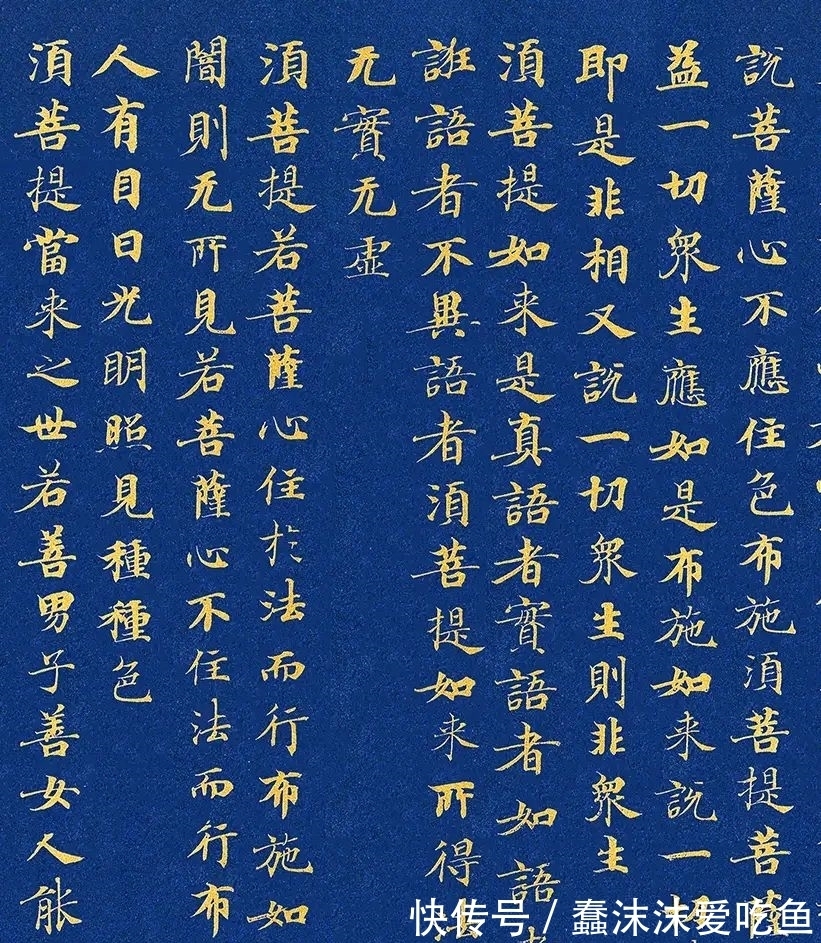 說菩薩心不應住色布施須菩提菩薩
益一切衆生應如是布施如来說一切
即是非相又說一切衆生則非衆生
須菩提如来是真語者實語者如語者
誑語者不異語者須菩提如来所得法
无實无虛
須菩提若菩薩心住於法而行布施如
闇則无所見若菩薩心不住法而行布
人有目日光明照見種種色
須菩提當来之世若善男子善女人能
快传号/蠢沫沫爱吃鱼